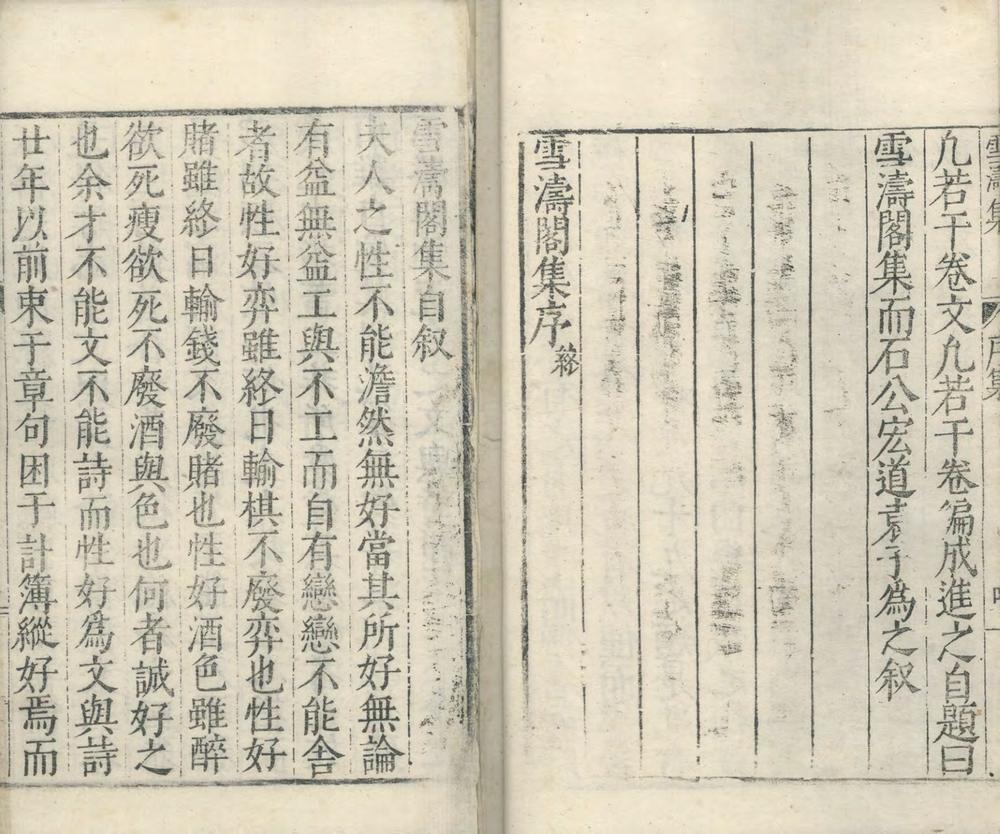 雪濤集
序集
凢若干卷文凢若干卷編成進之自題曰
雪濤閣集而石公宏道袁子為之叙
雪濤閣集序終
雪濤閣集自叙
夫人之性不能澹然無好當其所好無論
有益無益工與不工而自有戀戀不能舎
者故性好弈雖終日輸棋不廢弈也性好
賭雖終日輸錢不廢賭也性好酒色雖醉
欲死瘦欲死不廢酒與色也何者誠好之
也余才不能文不能詩而性好為文與詩
廿年以前束于章句困于計簿縱好焉而